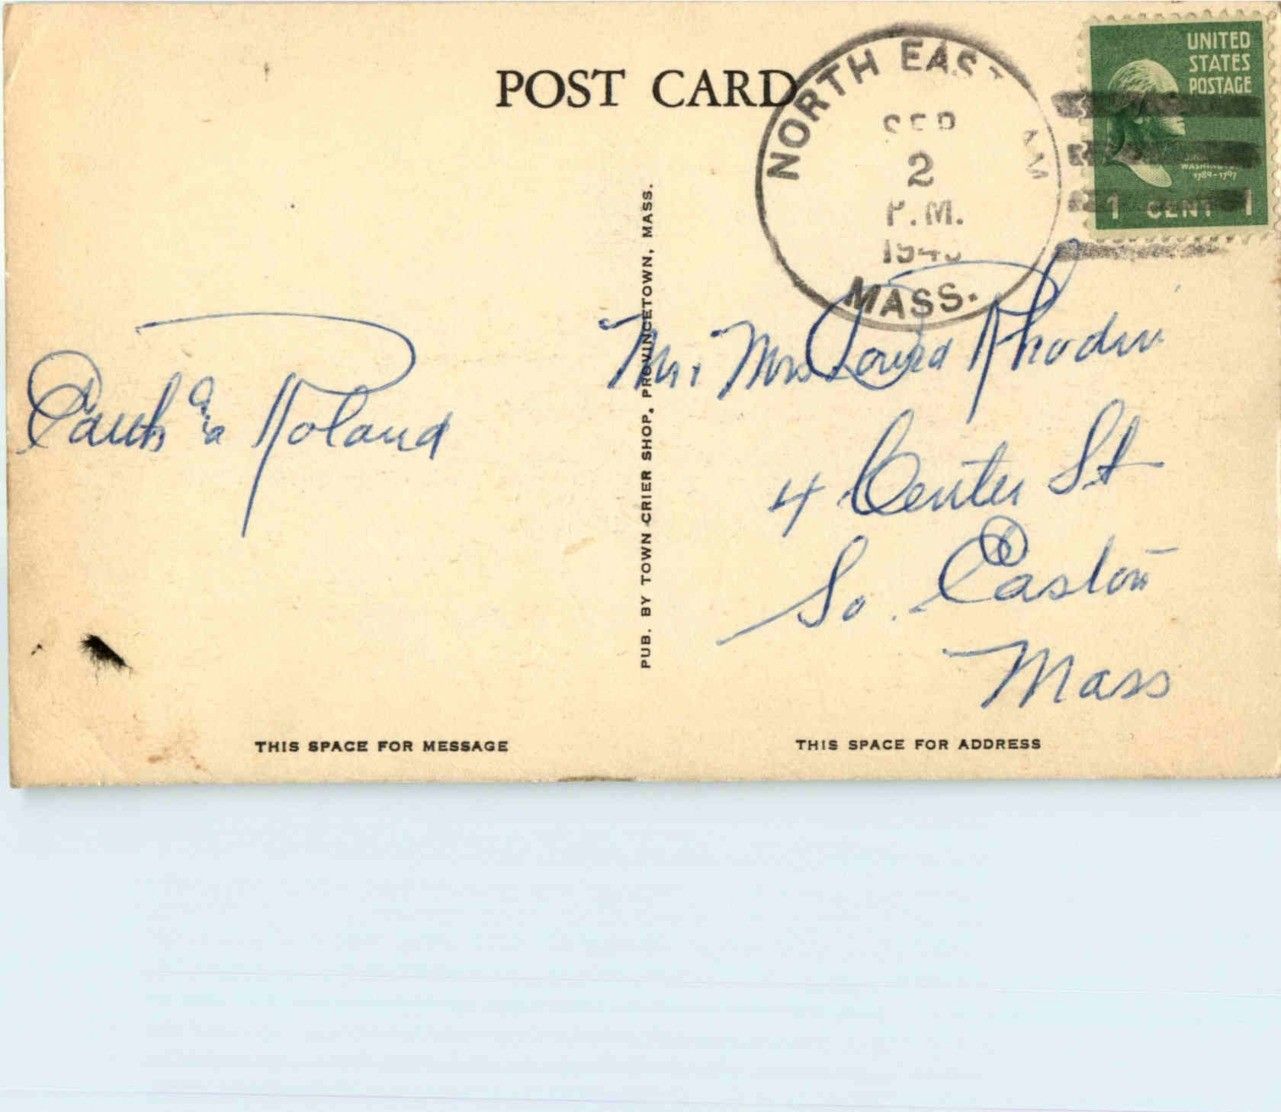 POST CARD
NORTH EAST
SEP
2
P.M.
MASS.
UNITED
STATES
POSTAGE
1789-1797
1 CENT 1
PUB. BY TOWN CRIER SHOP, PROVINCETOWN, MASS.
Roland
Mr. Mrs
4 Center St
So. Easton
Mass
THIS SPACE FOR MESSAGE
THIS SPACE FOR ADDRESS